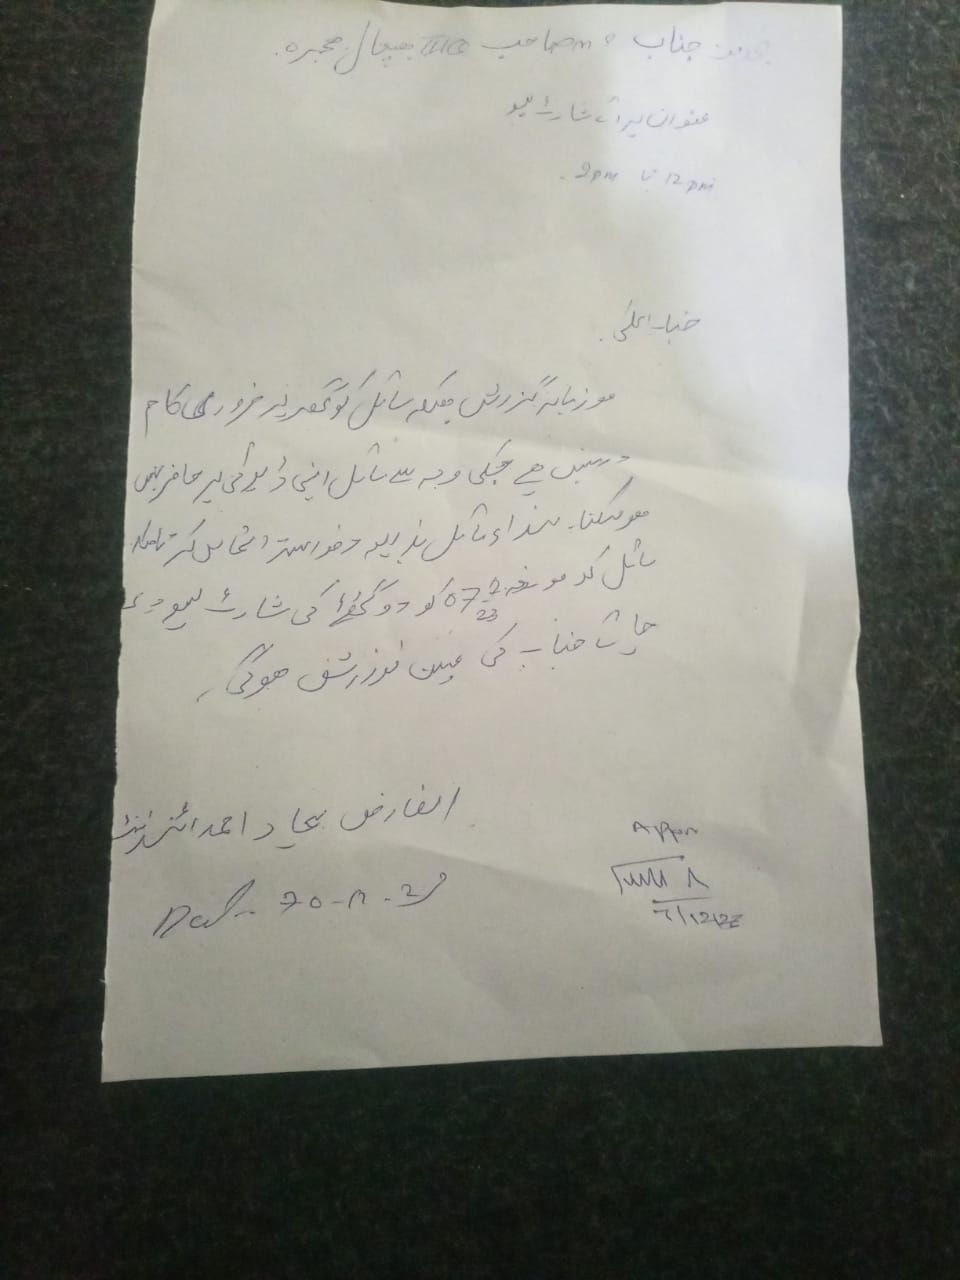 جناب MS صاحب THQ ہسپتال ہجیرہ
عنوان برائے شارٹ لیو
9pm تا 12pm
جناب عالی
مودبانہ گزارش ہیکہ سائل کو گھر پر ضروری کام
درپیش ہے جسکی وجہ سے سائل اپنی ڈیوٹی پر حاضر نہیں
ہو سکتا۔ لہذا سائل بذریعہ درخواست التماس کرتا ہیکہ
سائل کو مورخہ 07 کو دو گھنٹے کی شارٹ لیو دی
جائے جناب کی عین نوازش ہوگی
العارض سجاد احمد
7/12/23